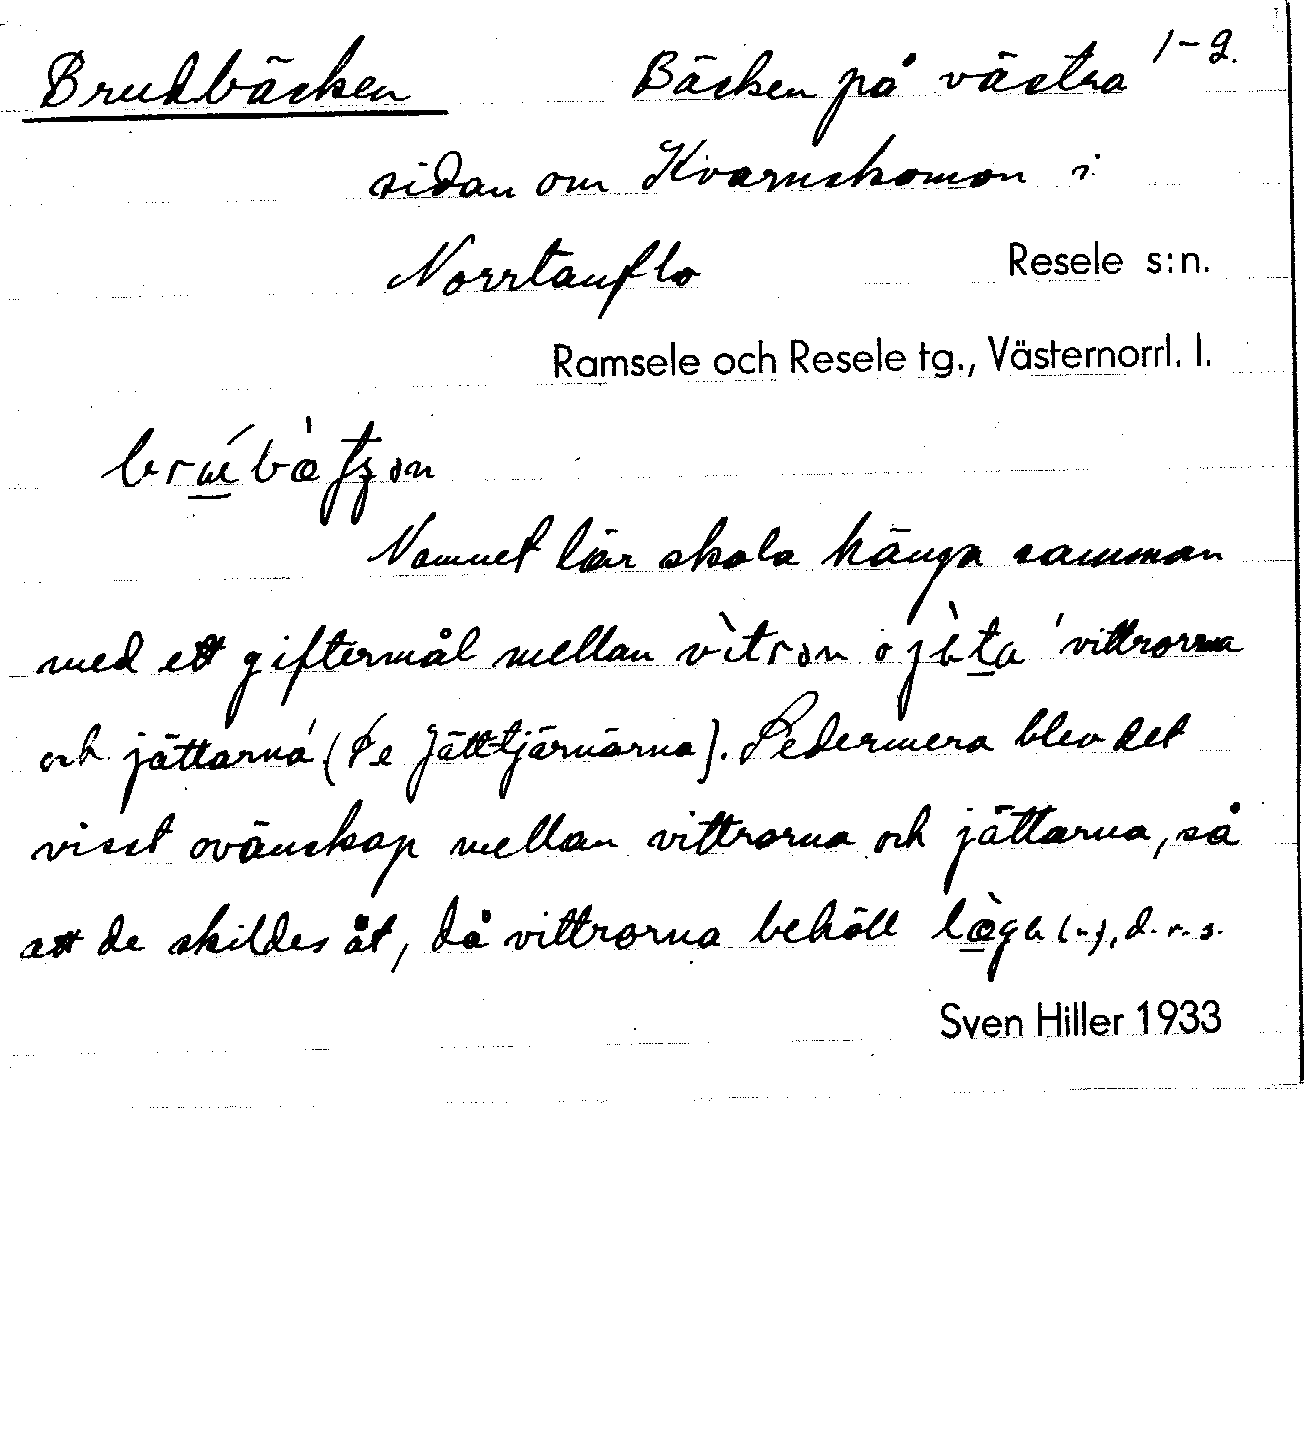 Brudbäcken Bäcken på västra 1-2.
sidan om Kvarnskomon i
Norrtanflo Resele s:n.
Ramsele och Resele tg., Västernorrl. l.
Namnet lär skola hänga samman
med ett giftermål mellan vìtrən o 'vittrorna
och jättarna' (se Jättjärnarna). Sedermera blev det
visst ovänskap mellan vittrorna och jättarna, så
att de skildes åt, då vittrorna behöll (-), d.v.s.
Sven Hiller 1933